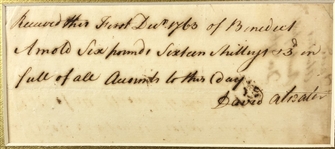 Received this First Decr. 1763 of Benedict
Arnold Six pounds Sixteen Shillings & 3d in
full of all Accounts to this day
David